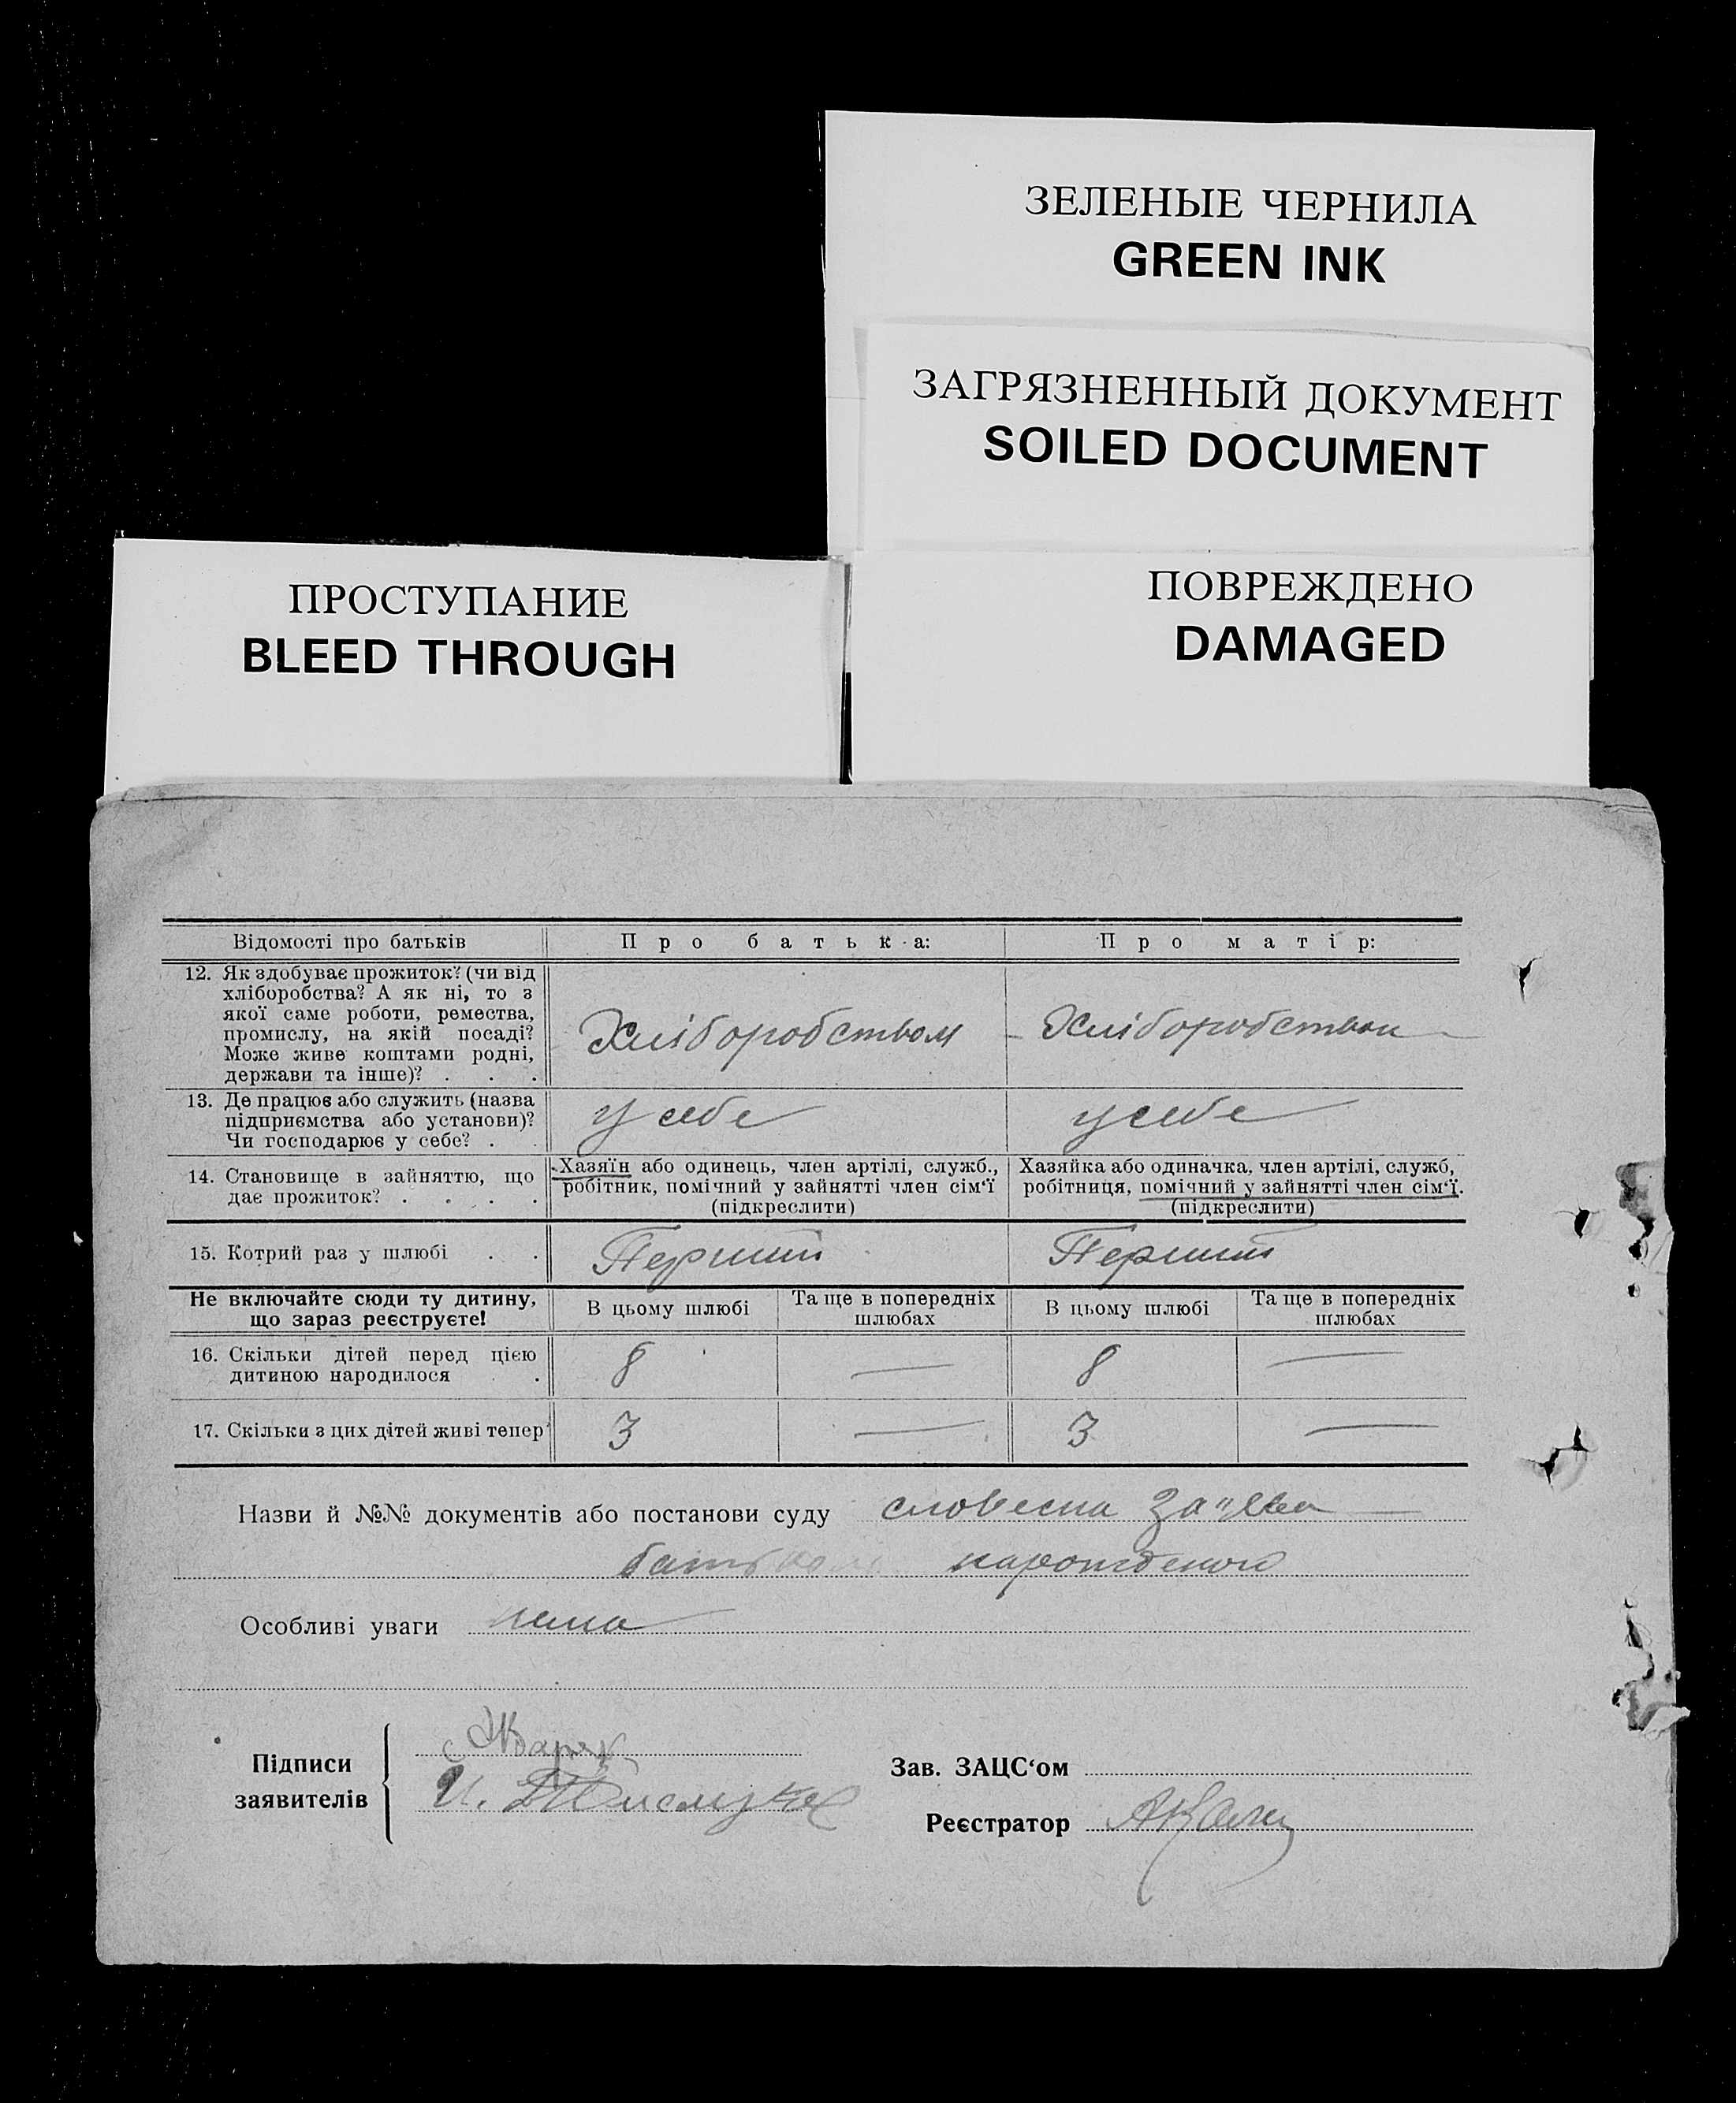 ЗЕЛЕНЫЕ ЧЕРНИЛА
GREEN INK
ЗАГРЯЗНЕННЫЙ ДОКУМЕНТ
SOILED DOCUMENT
ПРОСТУПАНИЕ
BLEED THROUGH
ПОВРЕЖДЕНО
DAMAGED
Відомості про батьків
Про батька:
Про матір:
12. Як здобуває прожиток? (чи від
хліборобства? А як ні, то з
якої саме роботи, ремества,
промислу, на якій посаді?
Може живе коштами родні,
держави та інше)? . . .
Хліборобством
Хліборобством
13. Де працює або служить (назва
підприємства або установи)?
Чи господарює у себе? . .
у себе
у себе
14. Становище в зайняттю, що
дає прожиток? . . . .
Хазяїн або одинець, член артілі, служб.,
робітник, помічний у зайнятті член сім‘ї
(підкреслити)
Хазяйка або одиначка, член артілі, служб,
робітниця, помічний у зайнятті член сім‘ї.
(підкреслити)
15. Котрий раз у шлюбі . .
Перший
Перший
Не включайте сюди ту дитину,
що зараз реєструєте!
В цьому шлюбі
Та ще в попередніх
шлюбах
В цьому шлюбі
Та ще в попередніх
шлюбах
16. Скільки дітей перед цією
дитиною народилося . .
8
—
8
—
17. Скільки з цих дітей живі тепер
3
—
3
—
Назви й №№ документів або постанови суду словесна заява
Особливі уваги нема
Підписи
заявителів
Зав. ЗАЦС‘ом
Реєстратор